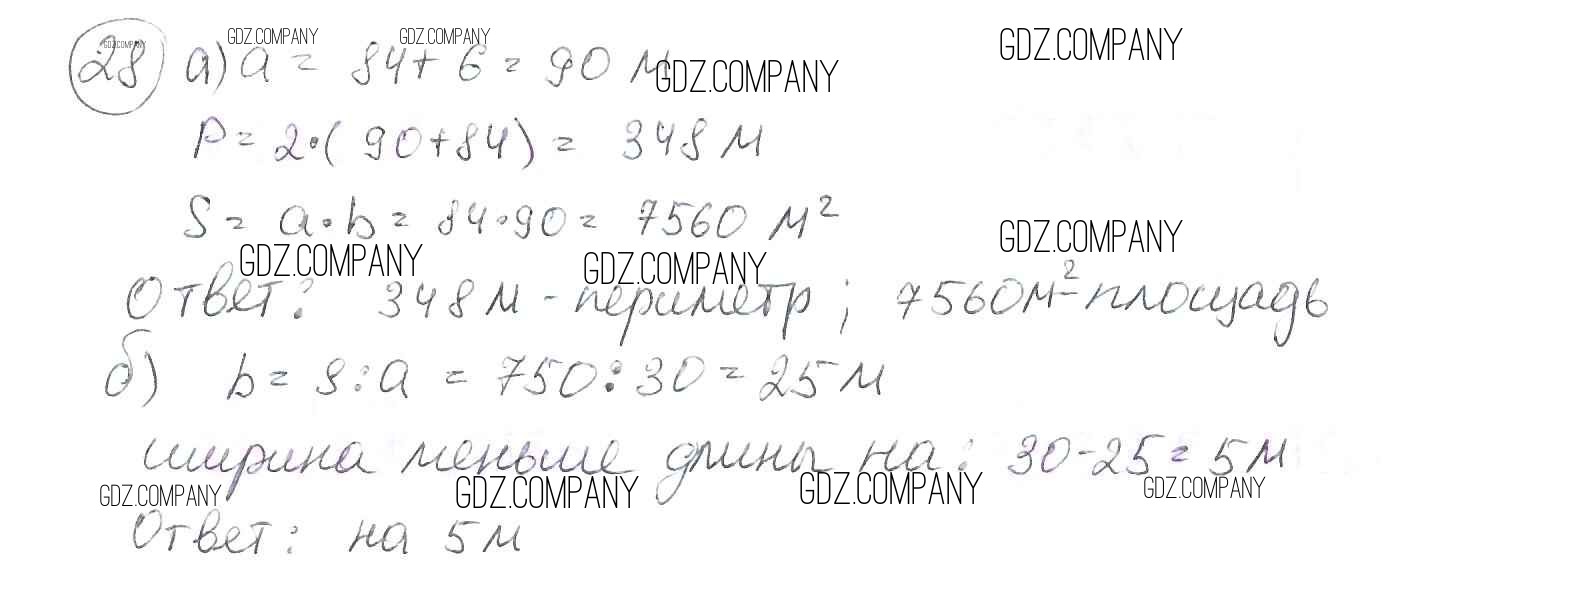 28 а) a = 84 + 6 = 90 м
P = 2·(90+84) = 348 м
S = a·b = 84·90 = 7560 м²
Ответ: 348 м - периметр; 7560 м² - площадь
б) b = S : a = 750 : 30 = 25 м
ширина меньше длины на: 30 - 25 = 5 м
Ответ: на 5 м
GDZ.COMPANY
GDZ.COMPANY
GDZ.COMPANY
GDZ.COMPANY
GDZ.COMPANY
GDZ.COMPANY
GDZ.COMPANY
GDZ.COMPANY
GDZ.COMPANY
GDZ.COMPANY
GDZ.COMPANY
GDZ.COMPANY